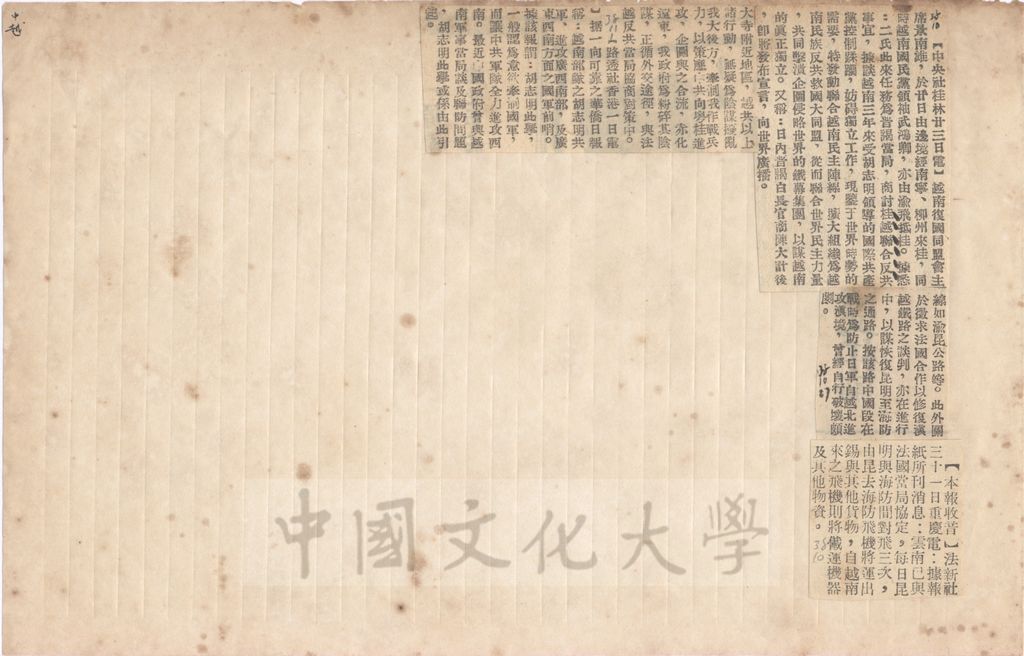 中越
【中央社桂林廿三日電】越南復國同盟會主
席景南雄，於廿日由邊境經南寧、柳州來桂，同
時越南國民黨領袖武鴻卿，亦由渝飛抵桂。據悉
：二氏此來任務為晉謁當局，商討桂越聯合反共
事宜，據談越南三年來受胡志明領導的國際共產
黨控制蹂躪，妨碍獨立工作，現鑒于世界時勢的
需要，特發動聯合越南民主陣綫，擴大組織為越
南民族反共救國大同盟，從而聯合世界民主力量
，共同擊潰企圖侵略世界的鐵幕集團，以謀越南
的眞正獨立。又稱：日內晉謁白長官商陳大計後
，即將發布宣言，向世界廣播。
大寺附近地區，越共以上
諸行動，無疑為陰謀擾亂
我大後方，牽制我作戰兵
力，以策應中共向粵桂進
攻，企圖與之合流，赤化
遠東，我政府為粉碎其陰
謀，正循外交途徑，與法
越反共當局協商對策中。
路透社香港一日電
】據一向可靠之華僑日報
稱：越南部隊之胡志明共
軍，進攻廣西南部，及廣
東西南方面之國軍前哨。
據該報謂：胡志明此舉，
一般認為意欲牽制國軍，
而讓中共軍隊全力進攻西
南。最近中國政府曾與越
南軍事當局談及聯防問題
，胡志明此舉或係由此引
起。
線如渝昆公路等。此外關
於徵求法國合作以修復滇
越鐵路之談判，亦在進行
中，以謀恢復昆明至海防
之通路。按該路中國段在
戰時為防止日軍自越北進
攻滇境，曾經自行破壞頗
劇。
【本報收音】法新社
三十一日重慶電：據報
紙所刊消息：雲南已與
法國當局協定，每日昆
明與海防間對飛三次，
由昆去海防飛機將運出
錫與其他貨物，自越南
來之飛機則將儎運機器
及其他物資。
中國文化大學